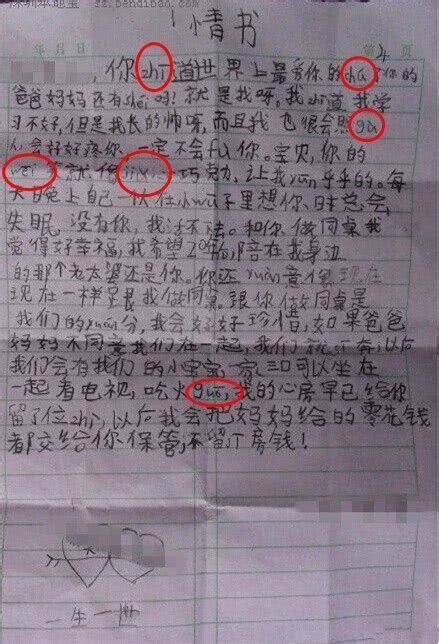 sz.bendibao.com
情书
年 月 日 第 页
，你zhī道世界上最爱你的chú了你的
爸爸妈妈还有shéi吗？就是我呀。我zhī道我学
习不好，但是我长的帅呀，而且我也很会照gù
会好好疼你，一定不会fù你。宝贝，你的
wēi 就像 巧克力，让我 乎乎的。每
天晚上自己一 在小wū子里想你，日 总会
失眠，没有你，我活不 去。和你做同桌我
觉得好幸福，我希望20年后，陪在我身边
的那个 太婆还是你。你还yuàn意像现在
现在一样 跟我做同桌，跟你做同桌是
我们的yuán分，我会好好珍惜，如果爸爸
妈妈不同意我们在一起，我们就 奔，以后
我们会有我们的小宝宝，一家三口可以坐在
一起看电视，吃火guō，我的心房早已给你
留了位zhì，以后我会把妈妈给的零花钱
都交给你保管，不留 房钱！
一生一世